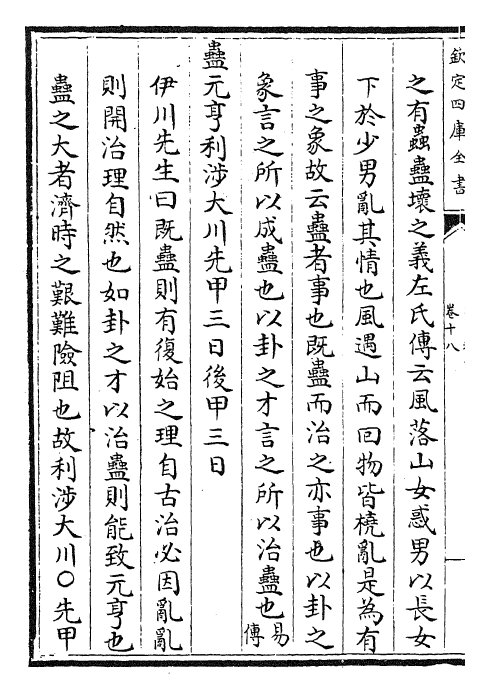 欽定四庫全書
卷十八
之有蟲蠱壞之義左氏傳云風落山女惑男以長女
下於少男亂其情也風遇山而回物皆橈亂是為有
事之象故云蠱者事也既蠱而治之亦事也以卦之
象言之所以成蠱也以卦之才言之所以治蠱也易傳
蠱元亨利涉大川先甲三日後甲三日
伊川先生曰既蠱則有復始之理自古治必因亂亂
則開治理自然也如卦之才以治蠱則能致元亨也
蠱之大者濟時之艱難險阻也故利涉大川○先甲